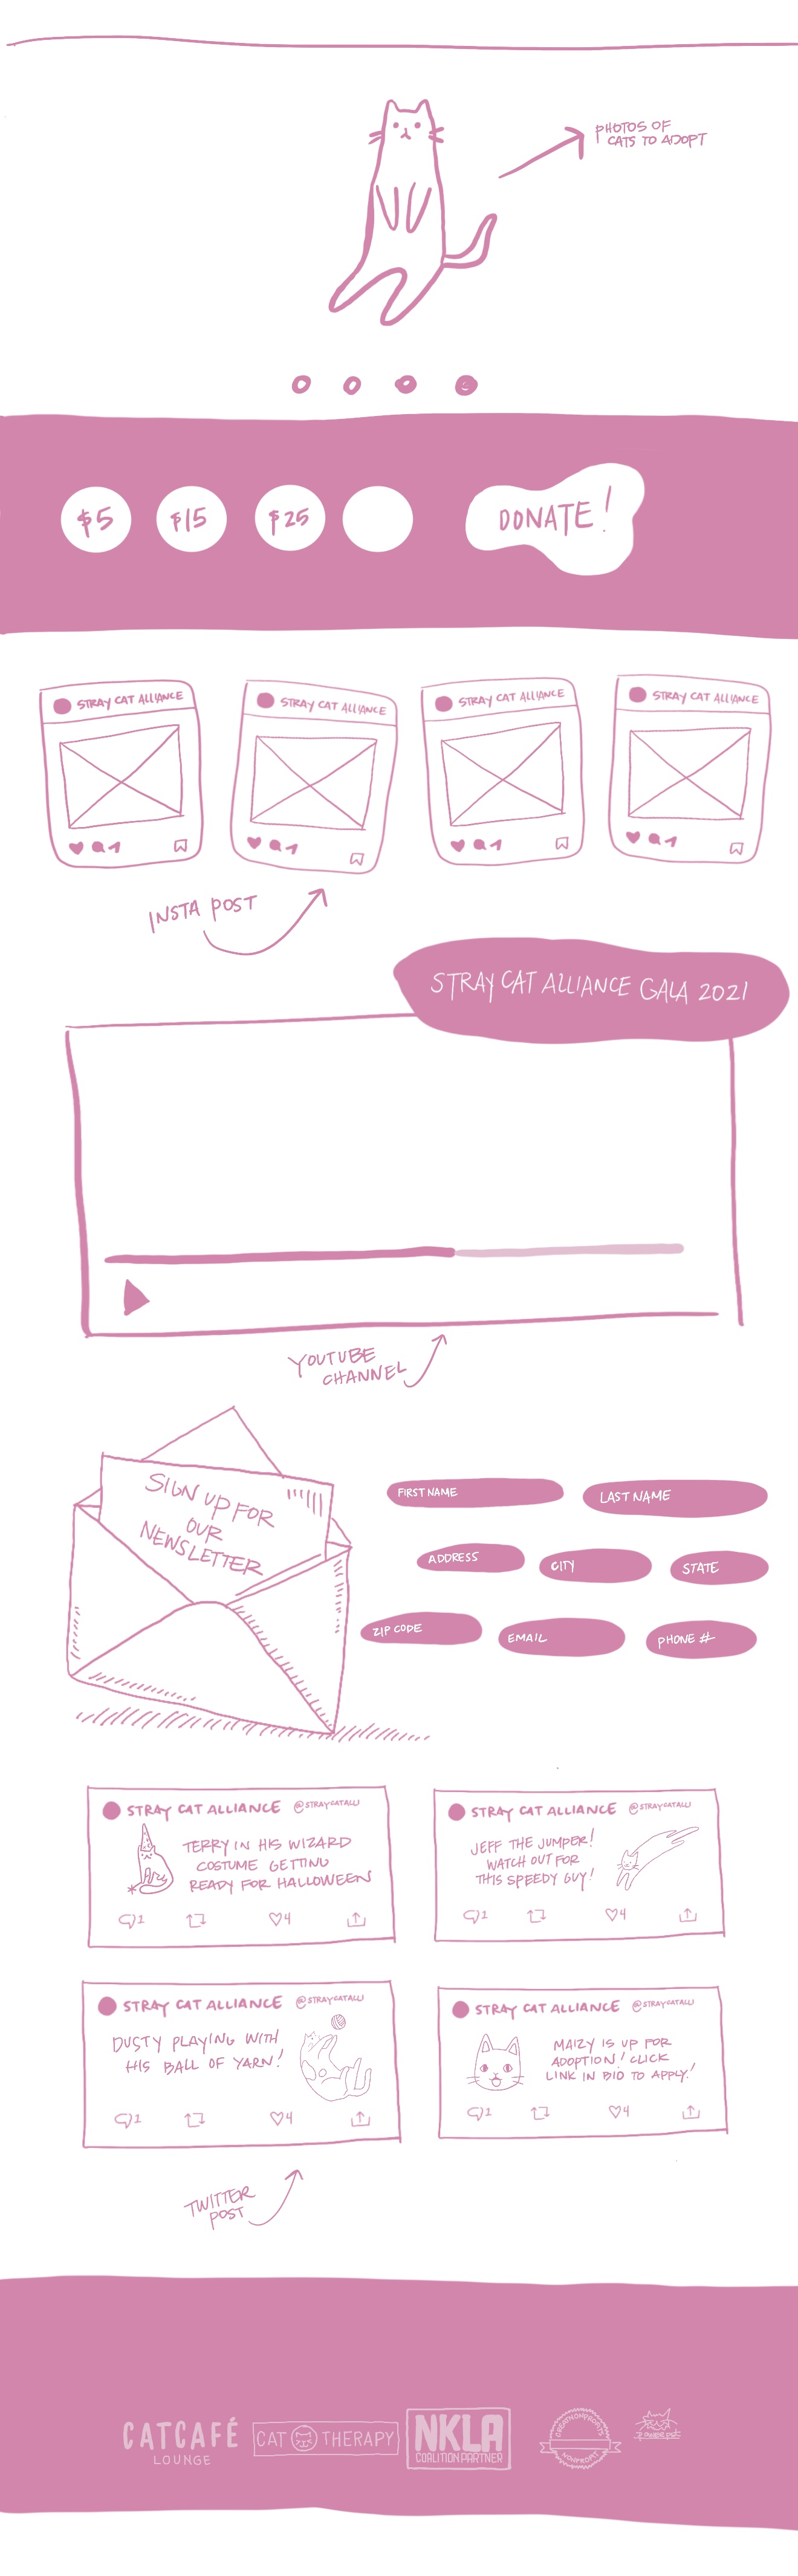 PHOTOS OF
CATS TO ADOPT
$5
$15
$25
DONATE!
STRAY CAT ALLIANCE
STRAY CAT ALLIANCE
STRAY CAT ALLIANCE
STRAY CAT ALLIANCE
INSTA POST
STRAY CAT ALLIANCE GALA 2021
YOUTUBE
CHANNEL
SIGN UP FOR
OUR
NEWSLETTER
FIRST NAME
LAST NAME
ADDRESS
CITY
STATE
ZIP CODE
EMAIL
PHONE #
STRAY CAT ALLIANCE @STRAYCATALLI
TERRY IN HIS WIZARD
COSTUME GETTING
READY FOR HALLOWEEN
1 4
STRAY CAT ALLIANCE @STRAYCATALLI
JEFF THE JUMPER!
WATCH OUT FOR
THIS SPEEDY GUY!
1 4
STRAY CAT ALLIANCE @STRAYCATALLI
DUSTY PLAYING WITH
HIS BALL OF YARN!
1 4
STRAY CAT ALLIANCE @STRAYCATALLI
MAIZY IS UP FOR
ADOPTION! CLICK
LINK IN BIO TO APPLY!
1 4
TWITTER
POST
CATCAFÉ
LOUNGE
CAT THERAPY
NKLA
COALITION PARTNER
GREATNONPROFITS
NONPROFIT